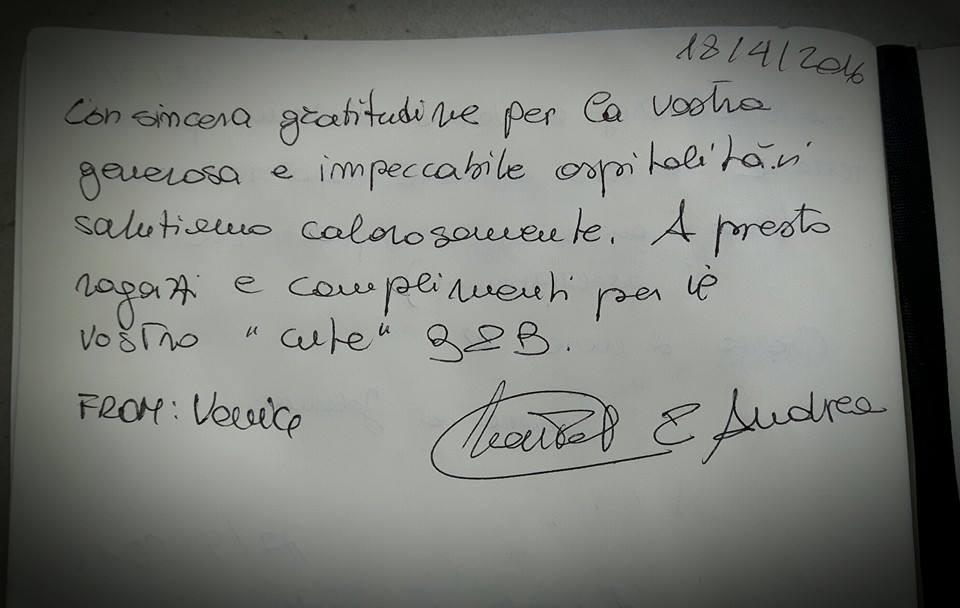 18/4/2016
Con sincera gratitudine per la vostra
generosa e impeccabile ospitalità.vi
salutiamo calorosamente. A presto
ragazzi e complimenti per il
vostro "cute" B&B.
FROM: Venice
E Andrea